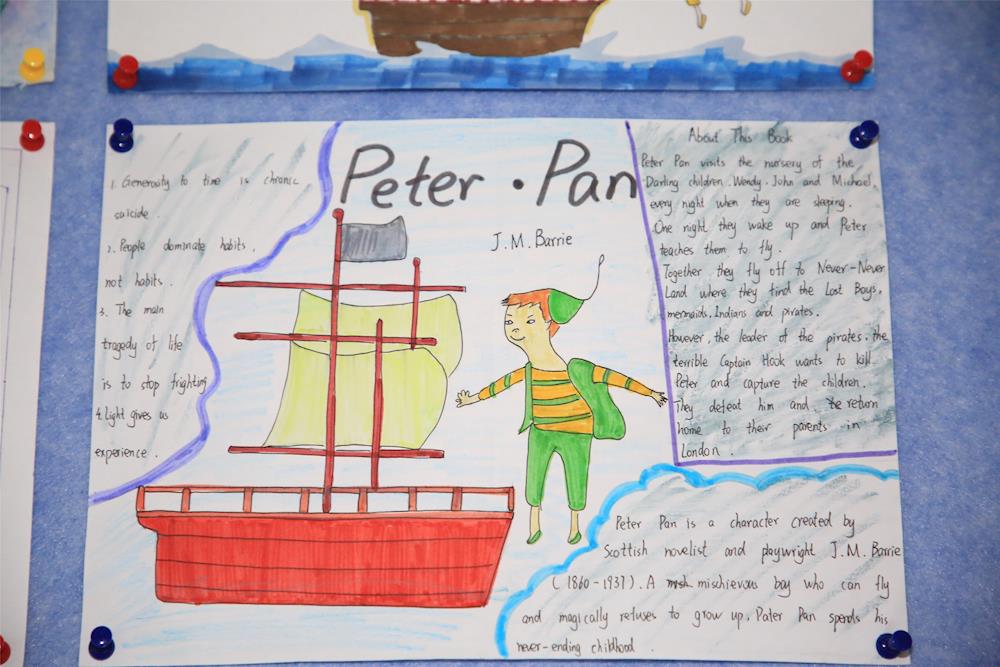 Peter · Pan
J.M. Barrie
1. Generosity to time is chronic
suicide.
2. People dominate habits,
not habits.
3. The main
tragedy of life
is to stop frighting
4. Light gives us
experience.
About This Book
Peter Pan visits the nursery of the
Darling children. Wendy. John and Michael.
every night when they are sleeping.
One night they wake up and Peter
teaches them to fly.
Together they fly off to Never-Never
Land where they find the Lost Boys,
mermaids. Indians and pirates.
However, the leader of the pirates. the
terrible Captain Hook wants to kill
Peter and capture the children.
They defeat him and return
home to their parents in
London.
Peter Pan is a character created by
Scottish novelist and playwright J.M. Barrie
(1860-1937). A mischievous boy who can fly
and magically refuses to grow up, Pater Pan spends his
never-ending childhood.